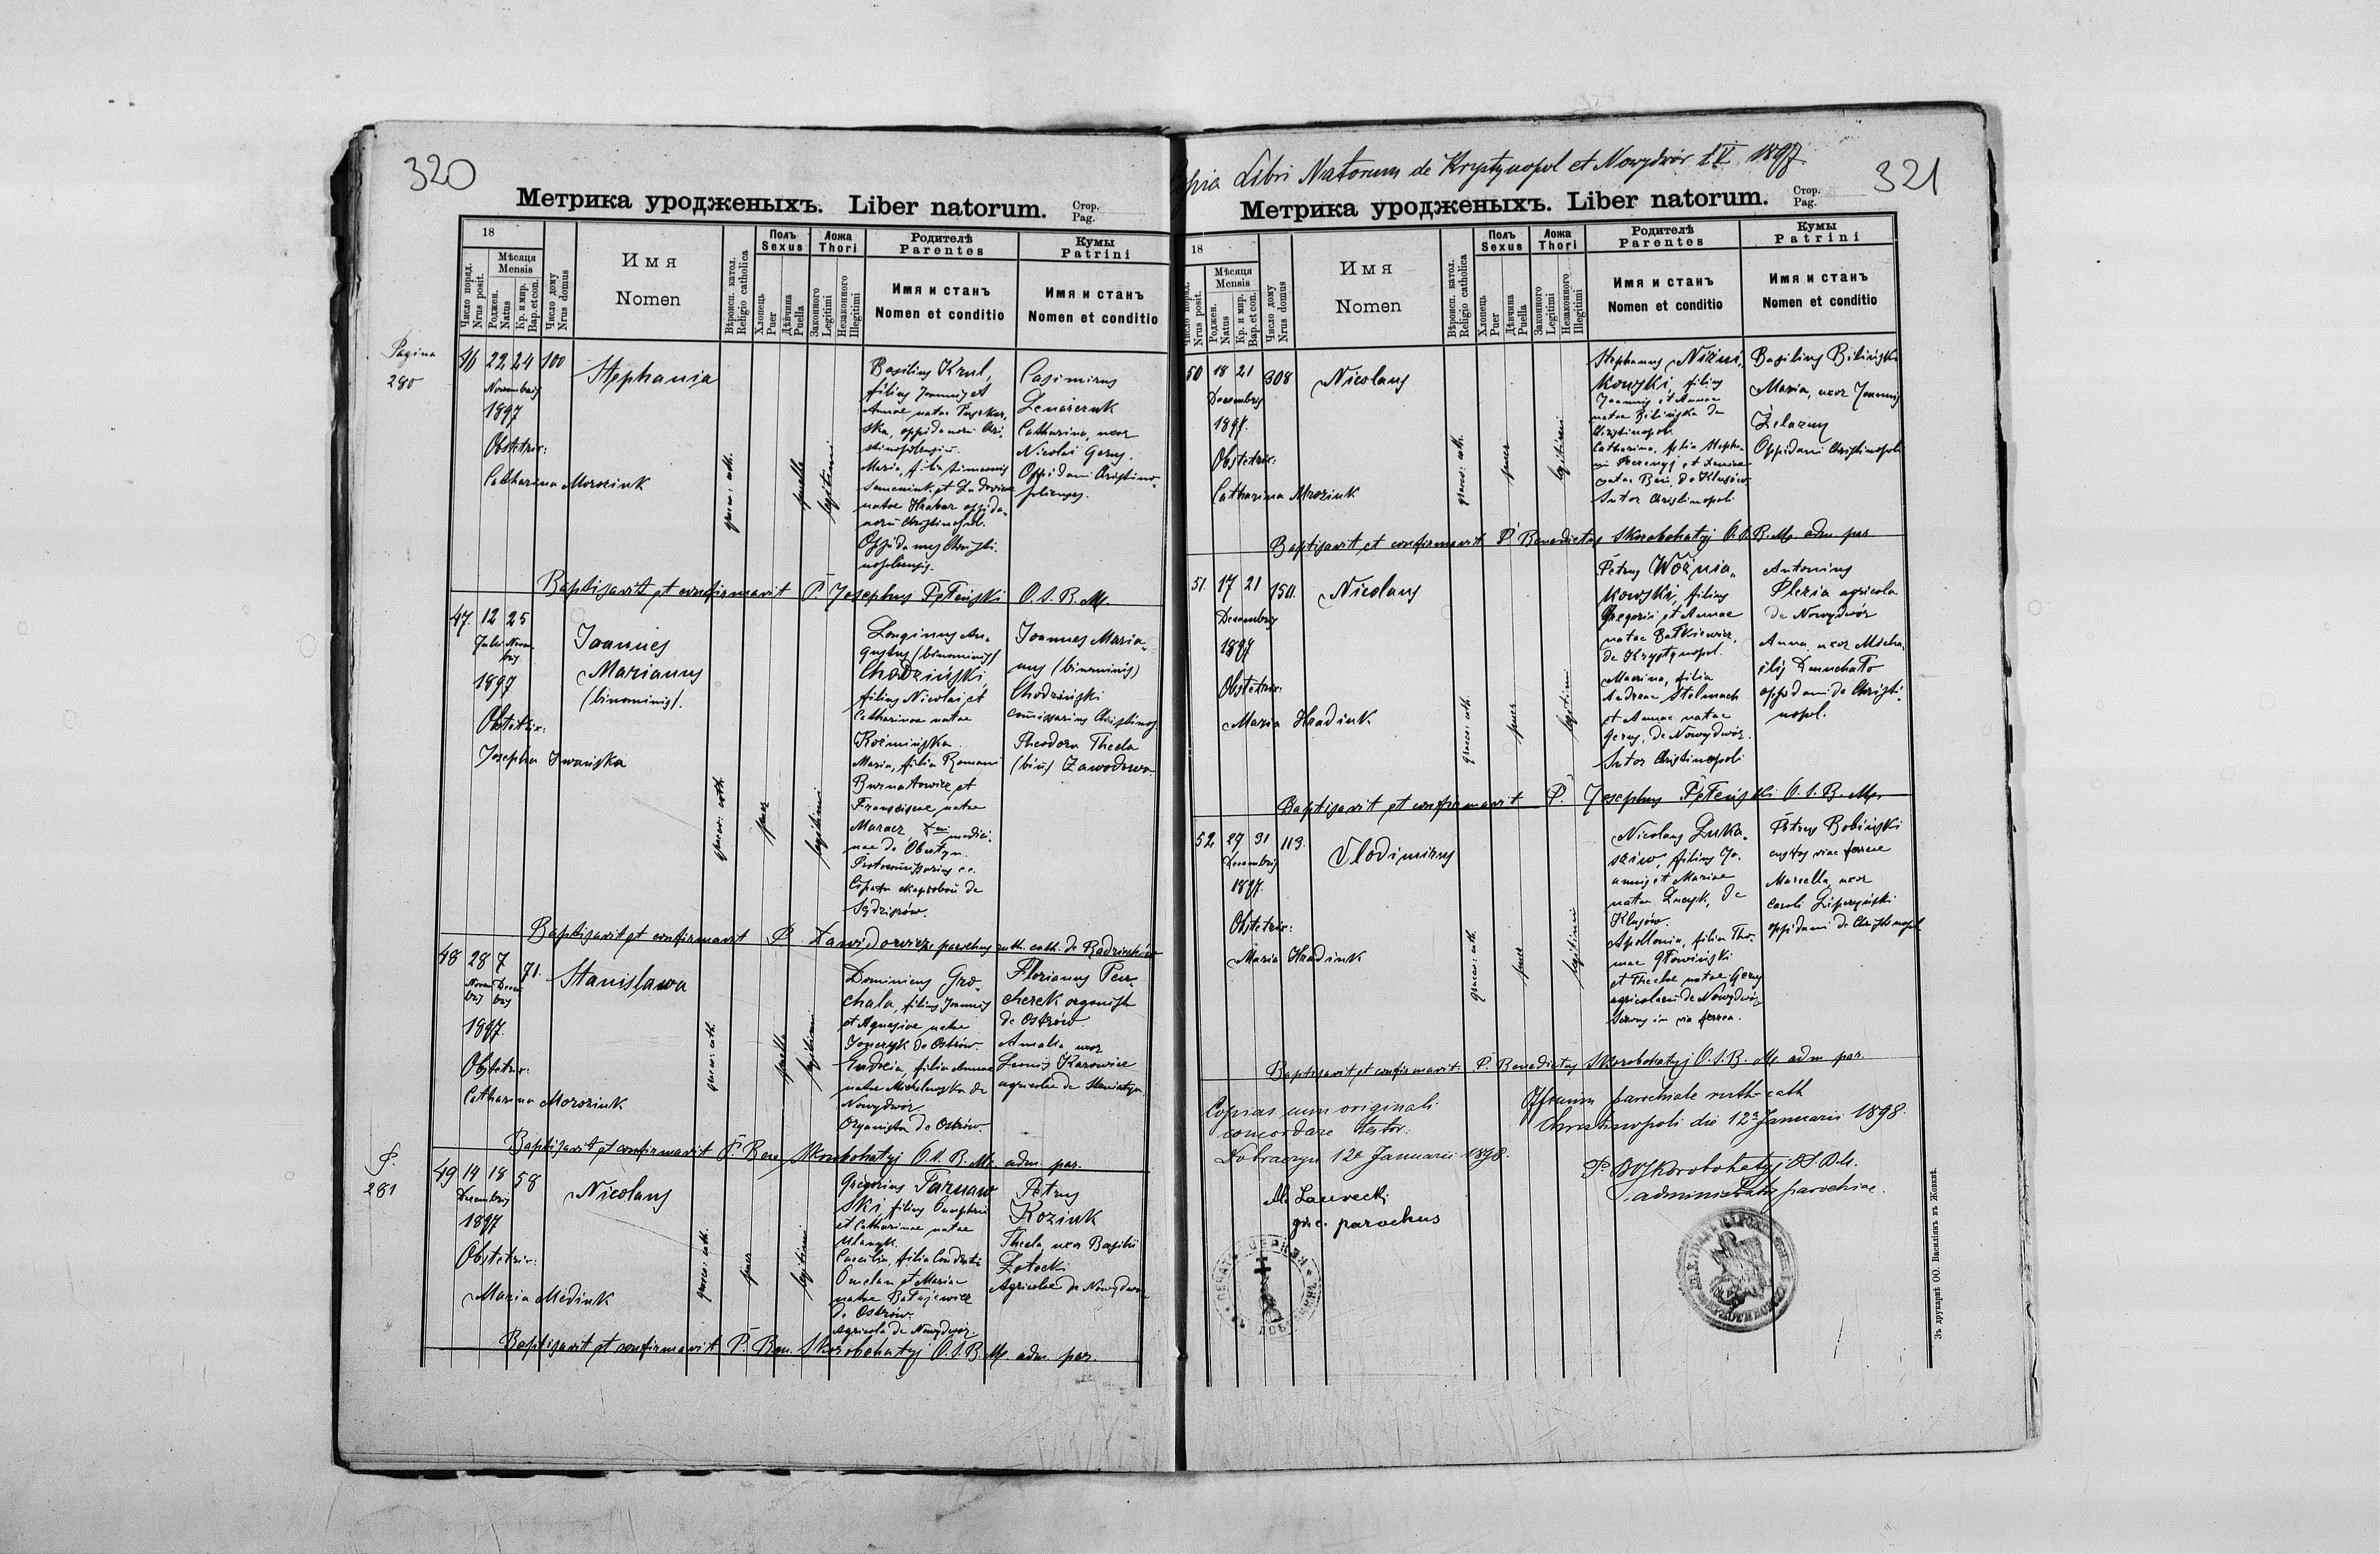 320
Метрика уродженыхъ. Liber natorum.
Стор.
Pag.
18
Мѣсяця
Mensis
Число поряд.
Nrus posit.
Роджен.
Natus
Кр. и мир.
Bap. et con.
Число дому
Nrus domus
Имя
Nomen
Вѣроисп. катол.
Religio catholica
Полъ
Sexus
Хлопець
Puer
Дѣвчина
Puella
Ложа
Thori
Законного
Legitimi
Незаконного
Illegitimi
Родителѣ
Parentes
Имя и станъ
Nomen et conditio
Кумы
Patrini
Имя и станъ
Nomen et conditio
Pagina
280
46 22 24 100
Novembris
1897
Obstetrix:
Catharina Morozink
Stephania
graeco: cath.
puella
legitimi
Basilius Krul,
filius Joannis et
Annae natae
oppidanorum Chri-
stinopolensium.
Maria, filia Simeonis
Semeniuk et Ludovicae
natae Hrabar oppida-
norum Christinopol.
Oppidanus Christi-
nopolensis.
Casimirus
Catharina, uxor
Nicolai Gerus.
Oppidani Christino-
polienses.
Baptisavit et confirmavit P. Josephus O.S.B.M.
47 12 25
Julii Novem
bris
1897
Obstetrix:
Josepha Iwańska
Joannes
Marianus
(binominis).
graeco: cath.
puer
legitimi
Longinus Au-
gustus (binominis)
Chodziński,
filius Nicolai et
Catharinae natae
Koźmińska
Maria, filia Romani
Burnatowicz et
Franciscae natae
medici-
nae de Obertyn.
de
Sędziszów.
Joannes Maria-
nus (binominis)
Chodziński
comissarius Christinop.
Theodora Thecla
(bin) Zawodowa
Baptisavit et confirmavit P. Dawidowicz parochus ruth. cath. de
48 28 7 71.
Novem Decem
bris bris
1897
Obstetrix:
Catharina Morozink
Stanislawa
graeco: cath.
puella
legitimi
Dominicus Gro-
chala, filius Joannis
et Agnesiae natae
Jonczyk de Ostrów.
Eudoxia, filia Annae
natae Michalewska de
Nowydwór.
Organista de Ostrów.
Florianus Pen-
cherek organista
de Ostrów.
Amalia uxor
agricolae de
Baptisavit et confirmavit P. Bene Skorobohatyj O.S.B.M. adm. par.
P.
281
49 14 18 58
Decembris
1897
Obstetrix:
Maria Medink
Nicolaus
graeco: cath.
puer
legitimi
Gregorius Tarnaw
ski, filius Onuphrii
et Catharinae natae
Caecilia, filia Condrati
Omelan et Mariae
natae Batajewicz
de Ostrów
Agricola de Nowydwór
Petrus
Kozink
Thecla uxor Basilii
Agricolae de Nowydwór
Baptisavit et confirmavit P. Ben. Skorobohatyj O.S.B.M. adm. par.
Copia Libri Natorum de Krystynopol et Nowydwór 1897.
321
Метрика уродженыхъ. Liber natorum.
Стор.
Pag.
18
Мѣсяця
Mensis
Число поряд.
Nrus posit.
Роджен.
Natus
Кр. и мир.
Bap. et con.
Число дому
Nrus domus
Имя
Nomen
Вѣроисп. катол.
Religio catholica
Полъ
Sexus
Хлопець
Puer
Дѣвчина
Puella
Ложа
Thori
Законного
Legitimi
Незаконного
Illegitimi
Родителѣ
Parentes
Имя и станъ
Nomen et conditio
Кумы
Patrini
Имя и станъ
Nomen et conditio
50 18 21 308
Decembris
1897.
Obstetrix:
Catharina Mrozink
Nicolaus
graeco: cath.
puer
legitimi
Stephanus
kowski, filius
Joannis et Annae
natae Bilińska de
Christinopol.
Catharina, filia Stepha-
ni
natae de Klusów
Sutor Christinopoli
Basilius Biliński
Maria, uxor Joannis
Żelazny
Oppidani Christinopoli
Baptisavit et confirmavit P. Benedictus Skorobohatyj O.S.B.M. adm. par
51. 17 21 154.
Decembris
1897
Obstetrix:
Maria Hradink
Nicolaus
graeco: cath.
puer
legitimi
Petrus Woźnia-
kowski, filius
Gregorii et Annae
natae Batkiewicz,
de Krystynopol.
Marina, filia
Andreae Stelmach
et Annae natae
Gerus, de Nowydwór.
Sutor Christinopoli
Antonius
Plezia agricola
de Nowydwór
Anna uxor Micha-
ilis
oppidani de Christi-
nopol.
Baptisavit et confirmavit P. Josephus O.S.B.M.
52 27 31 113.
Decembris
1897.
Obstetrix:
Maria Hradink
Vlodimirus
graeco: cath.
puer
legitimi
Nicolaus Luka-
sziw, filius Jo-
annis et Mariae
natae de
Klusów.
Apollonia, filia Tho-
mae Głowiński
et Theclae natae Gerus
agricolarum de Nowydwór
Servus in via ferrea.
Petrus Bobiński
custos viae ferreae
Marcella, uxor
Caroli Lipczyński
oppidani de Christinopol
Baptisavit et confirmavit P. Benedictus Skorobohatyj O.S.B.M. adm. par.
Copias cum originali
concordare testor.
Dobraczyn 12 Januarii 1898.
Al. Laurecki
gr. c. parochus
Officium parochiale ruth. cath
Christinopoli die 12 Januarii 1898.
P. B. Skorobohatyj O.S.B.M.
administrator parochiae.
Зъ друкарнѣ ОО. Василіянъ въ Жовквѣ.